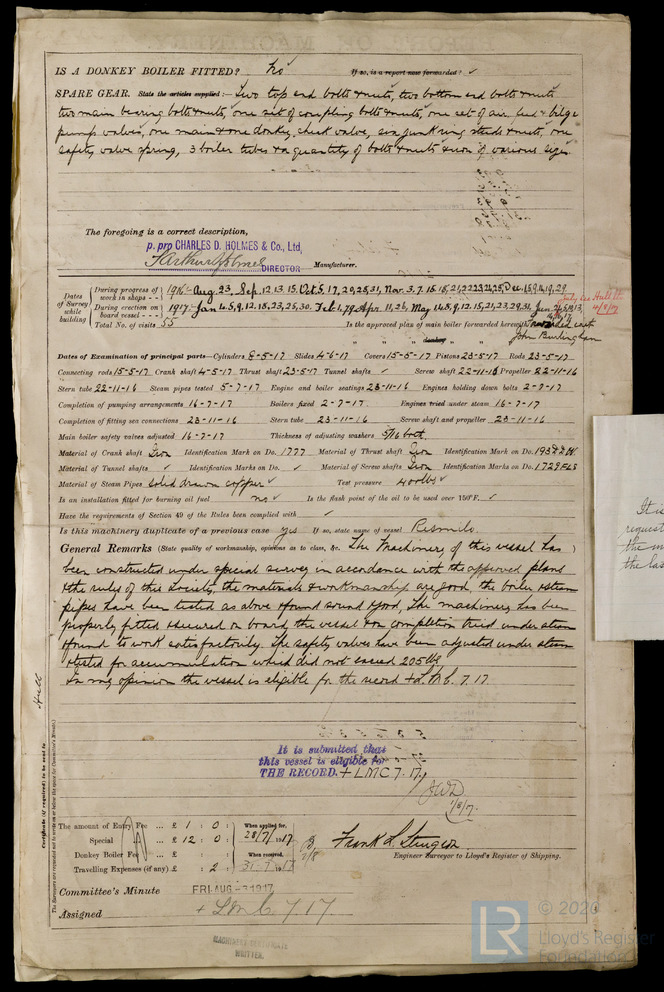 IS A DONKEY BOILER FITTED? No If so, is a report now forwarded? ✓
SPARE GEAR. State the articles supplied:— Two top end bolts & nuts, two bottom end bolts & nuts
two main bearing bolts & nuts, one set of coupling bolts & nuts, one set of air, feed & bilge
pump valves, one main & one donkey check valve, six junk ring studs & nuts, one
safety valve spring, 3 boiler tubes & a quantity of bolts & nuts & iron of various sizes.
The foregoing is a correct description,
p. pro CHARLES D. HOLMES & Co., Ltd,
DIRECTOR Manufacturer.
Dates of Survey while building
During progress of work in shops - - 1916 Aug. 23, Sep. 12, 13, 15. Oct. 5, 17, 29, 25, 31, Nov. 3, 7,
During erection on board vessel - - - 1917 Jan 4, 5, 9, 12, 18, 23, 25, 30. Feb 1, 7, 9 Apr. 11, 26, May 1, 4, 8, 9, 12, 15, 21, 23, 29, 31, Jun
Total No. of visits 55 Is the approved plan of main boiler forwarded herewith
" " " donkey " " "
John Burlingham
Dates of Examination of principal parts—Cylinders 8-5-17 Slides 4-6-17 Covers 15-5-17 Pistons 23-5-17 Rods 23-5-17
Connecting rods 15-5-17 Crank shaft 4-5-17 Thrust shaft 23-5-17 Tunnel shafts ✓ Screw shaft 22-11-16 Propeller 22-11-16
Stern tube 22-11-16 Steam pipes tested 5-7-17 Engine and boiler seatings 23-11-16 Engines holding down bolts 2-7-17
Completion of pumping arrangements 16-7-17 Boilers fixed 2-7-17 Engines tried under steam 16-7-17
Completion of fitting sea connections 23-11-16 Stern tube 23-11-16 Screw shaft and propeller 23-11-16
Main boiler safety valves adjusted 16-7-17 Thickness of adjusting washers 5/16 both
Material of Crank shaft Iron Identification Mark on Do. 1777 Material of Thrust shaft Iron Identification Mark on Do.
Material of Tunnel shafts ✓ Identification Marks on Do. ✓ Material of Screw shafts Iron Identification Marks on Do. 1729 FLS
Material of Steam Pipes solid drawn copper ✓ Test pressure 400 lbs ✓
Is an installation fitted for burning oil fuel no ✓ Is the flash point of the oil to be used over 150°F. ✓
Have the requirements of Section 49 of the Rules been complied with ✓
Is this machinery duplicate of a previous case yes If so, state name of vessel Rismilo.
General Remarks (State quality of workmanship, opinions as to class, &c. The Machinery of this vessel has
been constructed under special survey in accordance with the approved plans
& the rules of this Society, the materials & workmanship are good, the boiler & steam
pipes have been tested as above & found sound & good, The machinery has been
properly fitted & secured on board the vessel & on completion tried under steam
& found to work satisfactorily. The safety valves have been adjusted under steam
& tested for accumulation which did not exceed 205 lbs
In my opinion the vessel is eligible for the record + L.M.C. 7.17
Hull
Certificate (if required) to be sent to
(The Surveyors are requested not to write on or below the space for Committee's Minute.)
It is submitted that
this vessel is eligible for
THE RECORD. + LMC 7.17
JWD
1/8/7.
The amount of Entry Fee ... £ 1 : 0 : When applied for,
Special ... £ 12 : 0 : 28/7/1917
Donkey Boiler Fee ... £ : : When received,
Travelling Expenses (if any) £ : 2 : 31.7.1917
Frank L. Sturgeon
Engineer Surveyor to Lloyd's Register of Shipping.
Committee's Minute FRI. AUG - 3 1917
Assigned + L.M.C. 7.17
MACHINERY CERTIFICATE
WRITTEN.
It is
request
the m
the las
LR © 2020
Lloyd's Register
Foundation